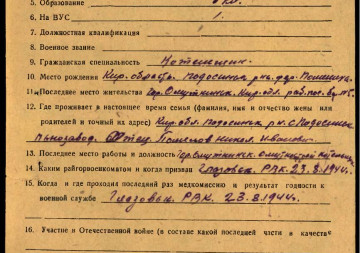 5. Образование
6. На ВУС 1
7. Должностная квалификация
8. Военное звание
9. Гражданская специальность
10. Место рождения Кир. область Подосинск. р-на дер.
11. Последнее место жительства гор. Омутнинск Кир. обл.
12. Где проживает в настоящее время семья (фамилия, имя и отчество жены или
родителей и точный их адрес) Кир. обл. Подосинск. р-н с. Подосинск.
льнозавод. Отец
13. Последнее место работы и должность гор. Омутнинск
14. Каким райгорвоенкоматом и когда призван РВК 23.8.1944г.
15. Когда и где проходил последний раз медкомиссию и результат годности к
военной службе Глазовск. РВК. 23.8.1944г.
16. Участие в Отечественной войне (в составе какой последней части и в качестве